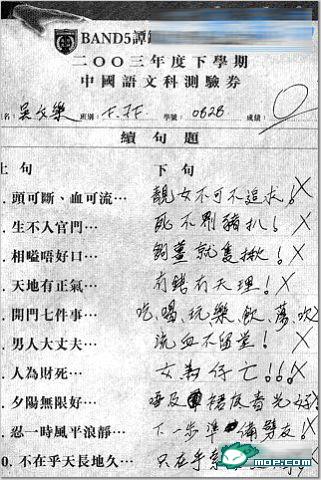 BAND5譚
二〇〇三年度下學期
中國語文科測驗券
名: 吳文樂 班別: F.7F 學號: 0626 成績: 0
續句題
上句 下句
. 頭可斷、血可流… 靚女不可不追求! X
. 生不入官門… 死不劏豬扒! X
. 相嗌唔好口… 就隻揪! X
. 天地有正氣… 有錢有天理! X
. 開門七件事… 吃、喝、玩、樂、飲、蕩、吹
. 男人大丈夫… 流血不留堂! X
. 人為財死… 女為仔亡!!! X
. 夕陽無限好… 唔及裙底春光好 X
. 忍一時風平浪靜… 下一步準備劈友! X
0. 不在乎天長地久… 只在乎
mop.com